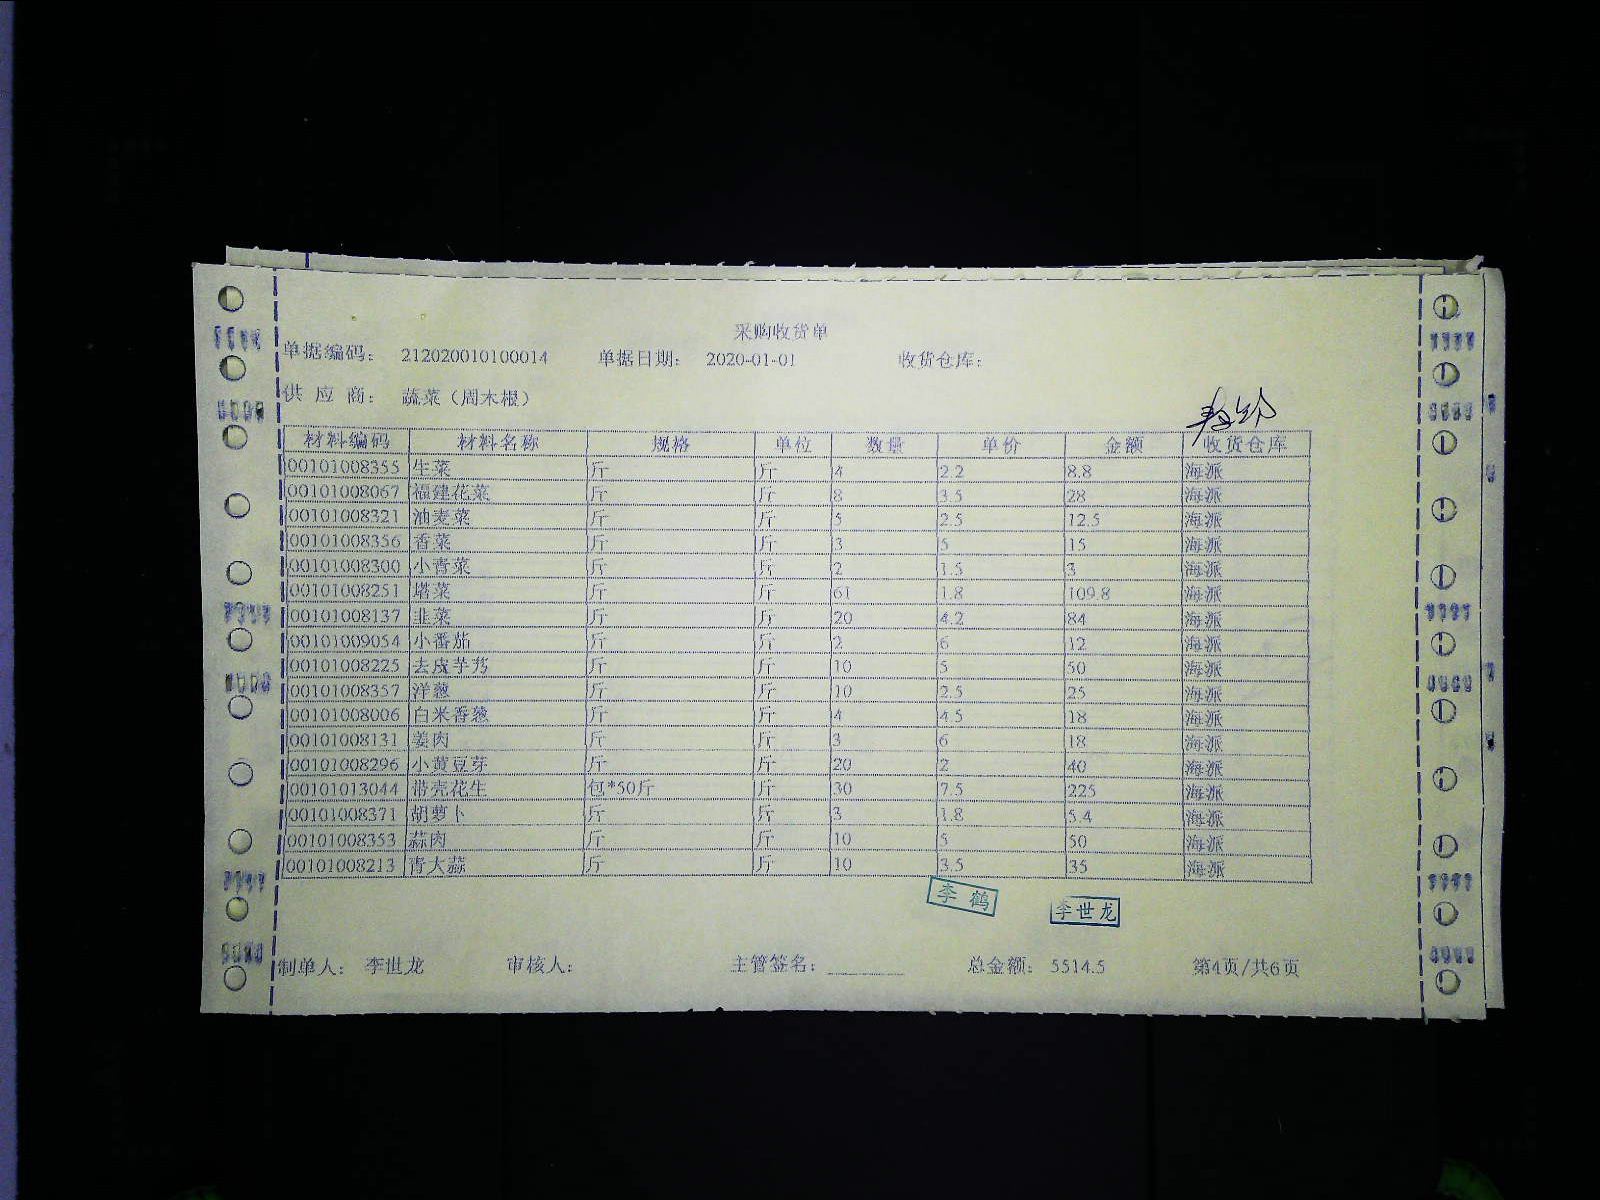 采购收货单
单据编码： 212020010100014 单据日期： 2020-01-01 收货仓库：
供 应 商： 蔬菜（周木根）
材料编码 材料名称 规格 单位 数量 单价 金额 收货仓库
00101008355 生菜 斤 斤 4 2.2 8.8 海派
00101008067 福建花菜 斤 斤 8 3.5 28 海派
00101008321 油麦菜 斤 斤 5 2.5 12.5 海派
00101008356 香菜 斤 斤 3 5 15 海派
00101008300 小青菜 斤 斤 2 1.5 3 海派
00101008251 塔菜 斤 斤 61 1.8 109.8 海派
00101008137 韭菜 斤 斤 20 4.2 84 海派
00101009054 小番茄 斤 斤 2 6 12 海派
00101008225 去皮芋艿 斤 斤 10 5 50 海派
00101008357 洋葱 斤 斤 10 2.5 25 海派
00101008006 白米香葱 斤 斤 4 4.5 18 海派
00101008131 姜肉 斤 斤 3 6 18 海派
00101008296 小黄豆芽 斤 斤 20 2 40 海派
00101013044 带壳花生 包*50斤 斤 30 7.5 225 海派
00101008371 胡萝卜 斤 斤 3 1.8 5.4 海派
00101008353 蒜肉 斤 斤 10 5 50 海派
00101008213 青大蒜 斤 斤 10 3.5 35 海派
李鹤 李世龙
制单人： 李世龙 审核人： 主管签名： 总金额： 5514.5 第4页/共6页